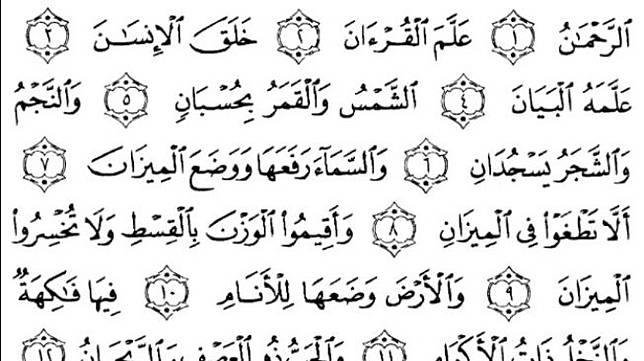 ٱلرَّحْمَٰنُ ١ عَلَّمَ ٱلْقُرْءَانَ ٢ خَلَقَ ٱلْإِنسَٰنَ ٣
عَلَّمَهُ ٱلْبَيَانَ ٤ ٱلشَّمْسُ وَٱلْقَمَرُ بِحُسْبَانٍ ٥ وَٱلنَّجْمُ
وَٱلشَّجَرُ يَسْجُدَانِ ٦ وَٱلسَّمَآءَ رَفَعَهَا وَوَضَعَ ٱلْمِيزَانَ ٧
أَلَّا تَطْغَوْا۟ فِى ٱلْمِيزَانِ ٨ وَأَقِيمُوا۟ ٱلْوَزْنَ بِٱلْقِسْطِ وَلَا تُخْسِرُوا۟
ٱلْمِيزَانَ ٩ وَٱلْأَرْضَ وَضَعَهَا لِلْأَنَامِ ١٠ فِيهَا فَٰكِهَةٌ
وَٱلنَّخْلُ ذَاتُ ٱلْأَكْمَامِ ١١ وَٱلْحَبُّ ذُو ٱلْعَصْفِ وَٱلرَّيْحَانُ ١٢